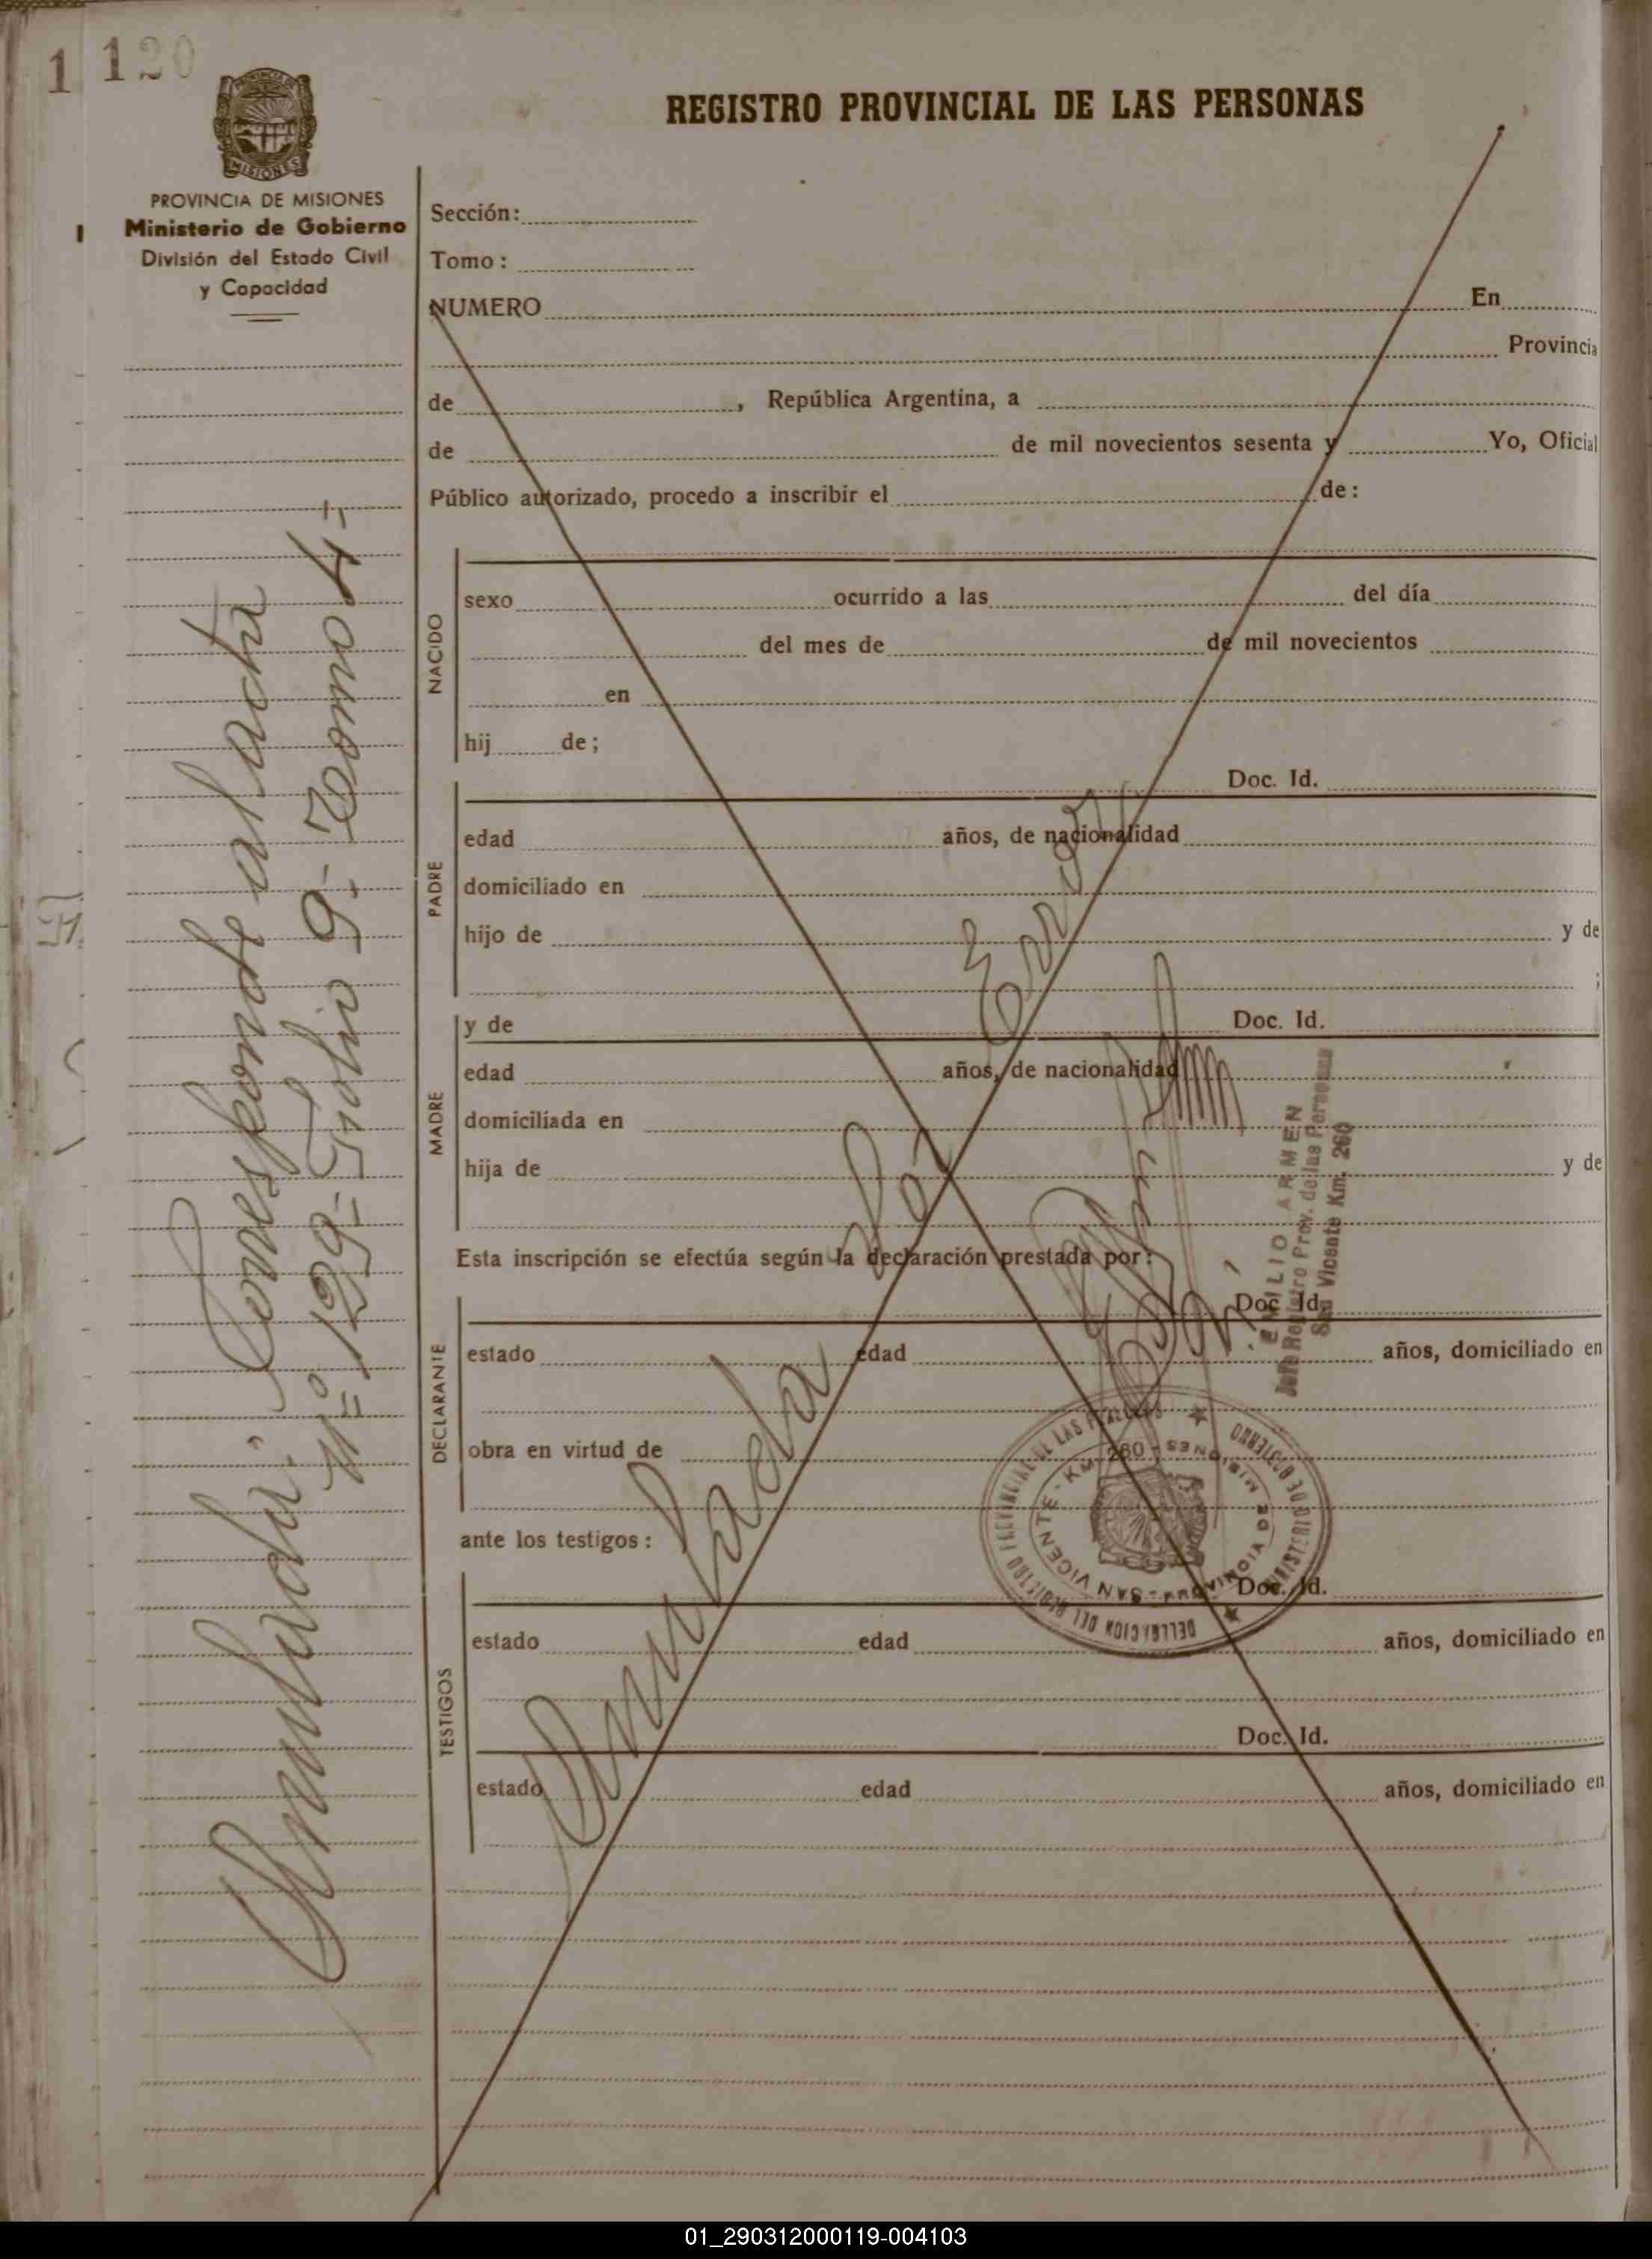 1 120
REGISTRO PROVINCIAL DE LAS PERSONAS
MISIONES
PROVINCIA DE MISIONES
Ministerio de Gobierno
División del Estado Civil
y Capacidad
Anulada. Corresponde al acta
Nº 129- Folio 9- Tomo 4-
Sección:
Tomo:
NUMERO En
Provincia
de , República Argentina, a
de de mil novecientos sesenta y Yo, Oficial
Público autorizado, procedo a inscribir el de:
NACIDO
sexo ocurrido a las del día
del mes de de mil novecientos
en
hij de;
PADRE
Doc. Id.
edad años, de nacionalidad
domiciliado en
hijo de y de
;
MADRE
y de Doc. Id.
edad años, de nacionalidad
domiciliada en
hija de y de
Esta inscripción se efectúa según la declaración prestada por:
DECLARANTE
Doc. Id.
estado edad años, domiciliado en
obra en virtud de
ante los testigos:
TESTIGOS
Doc. Id.
estado edad años, domiciliado en
Doc. Id.
estado edad años, domiciliado en
Anulada
EMILIO ARMEN
Jefe Registro Prov. de las Personas
San Vicente Km. 260
DELEGACION DEL REGISTRO PROVINCIAL DE LAS PERSONAS
MINISTERIO DE GOBIERNO
SAN VICENTE - KM 260 - MISIONES
PROVINCIA DE MISIONES
01_290312000119-004103